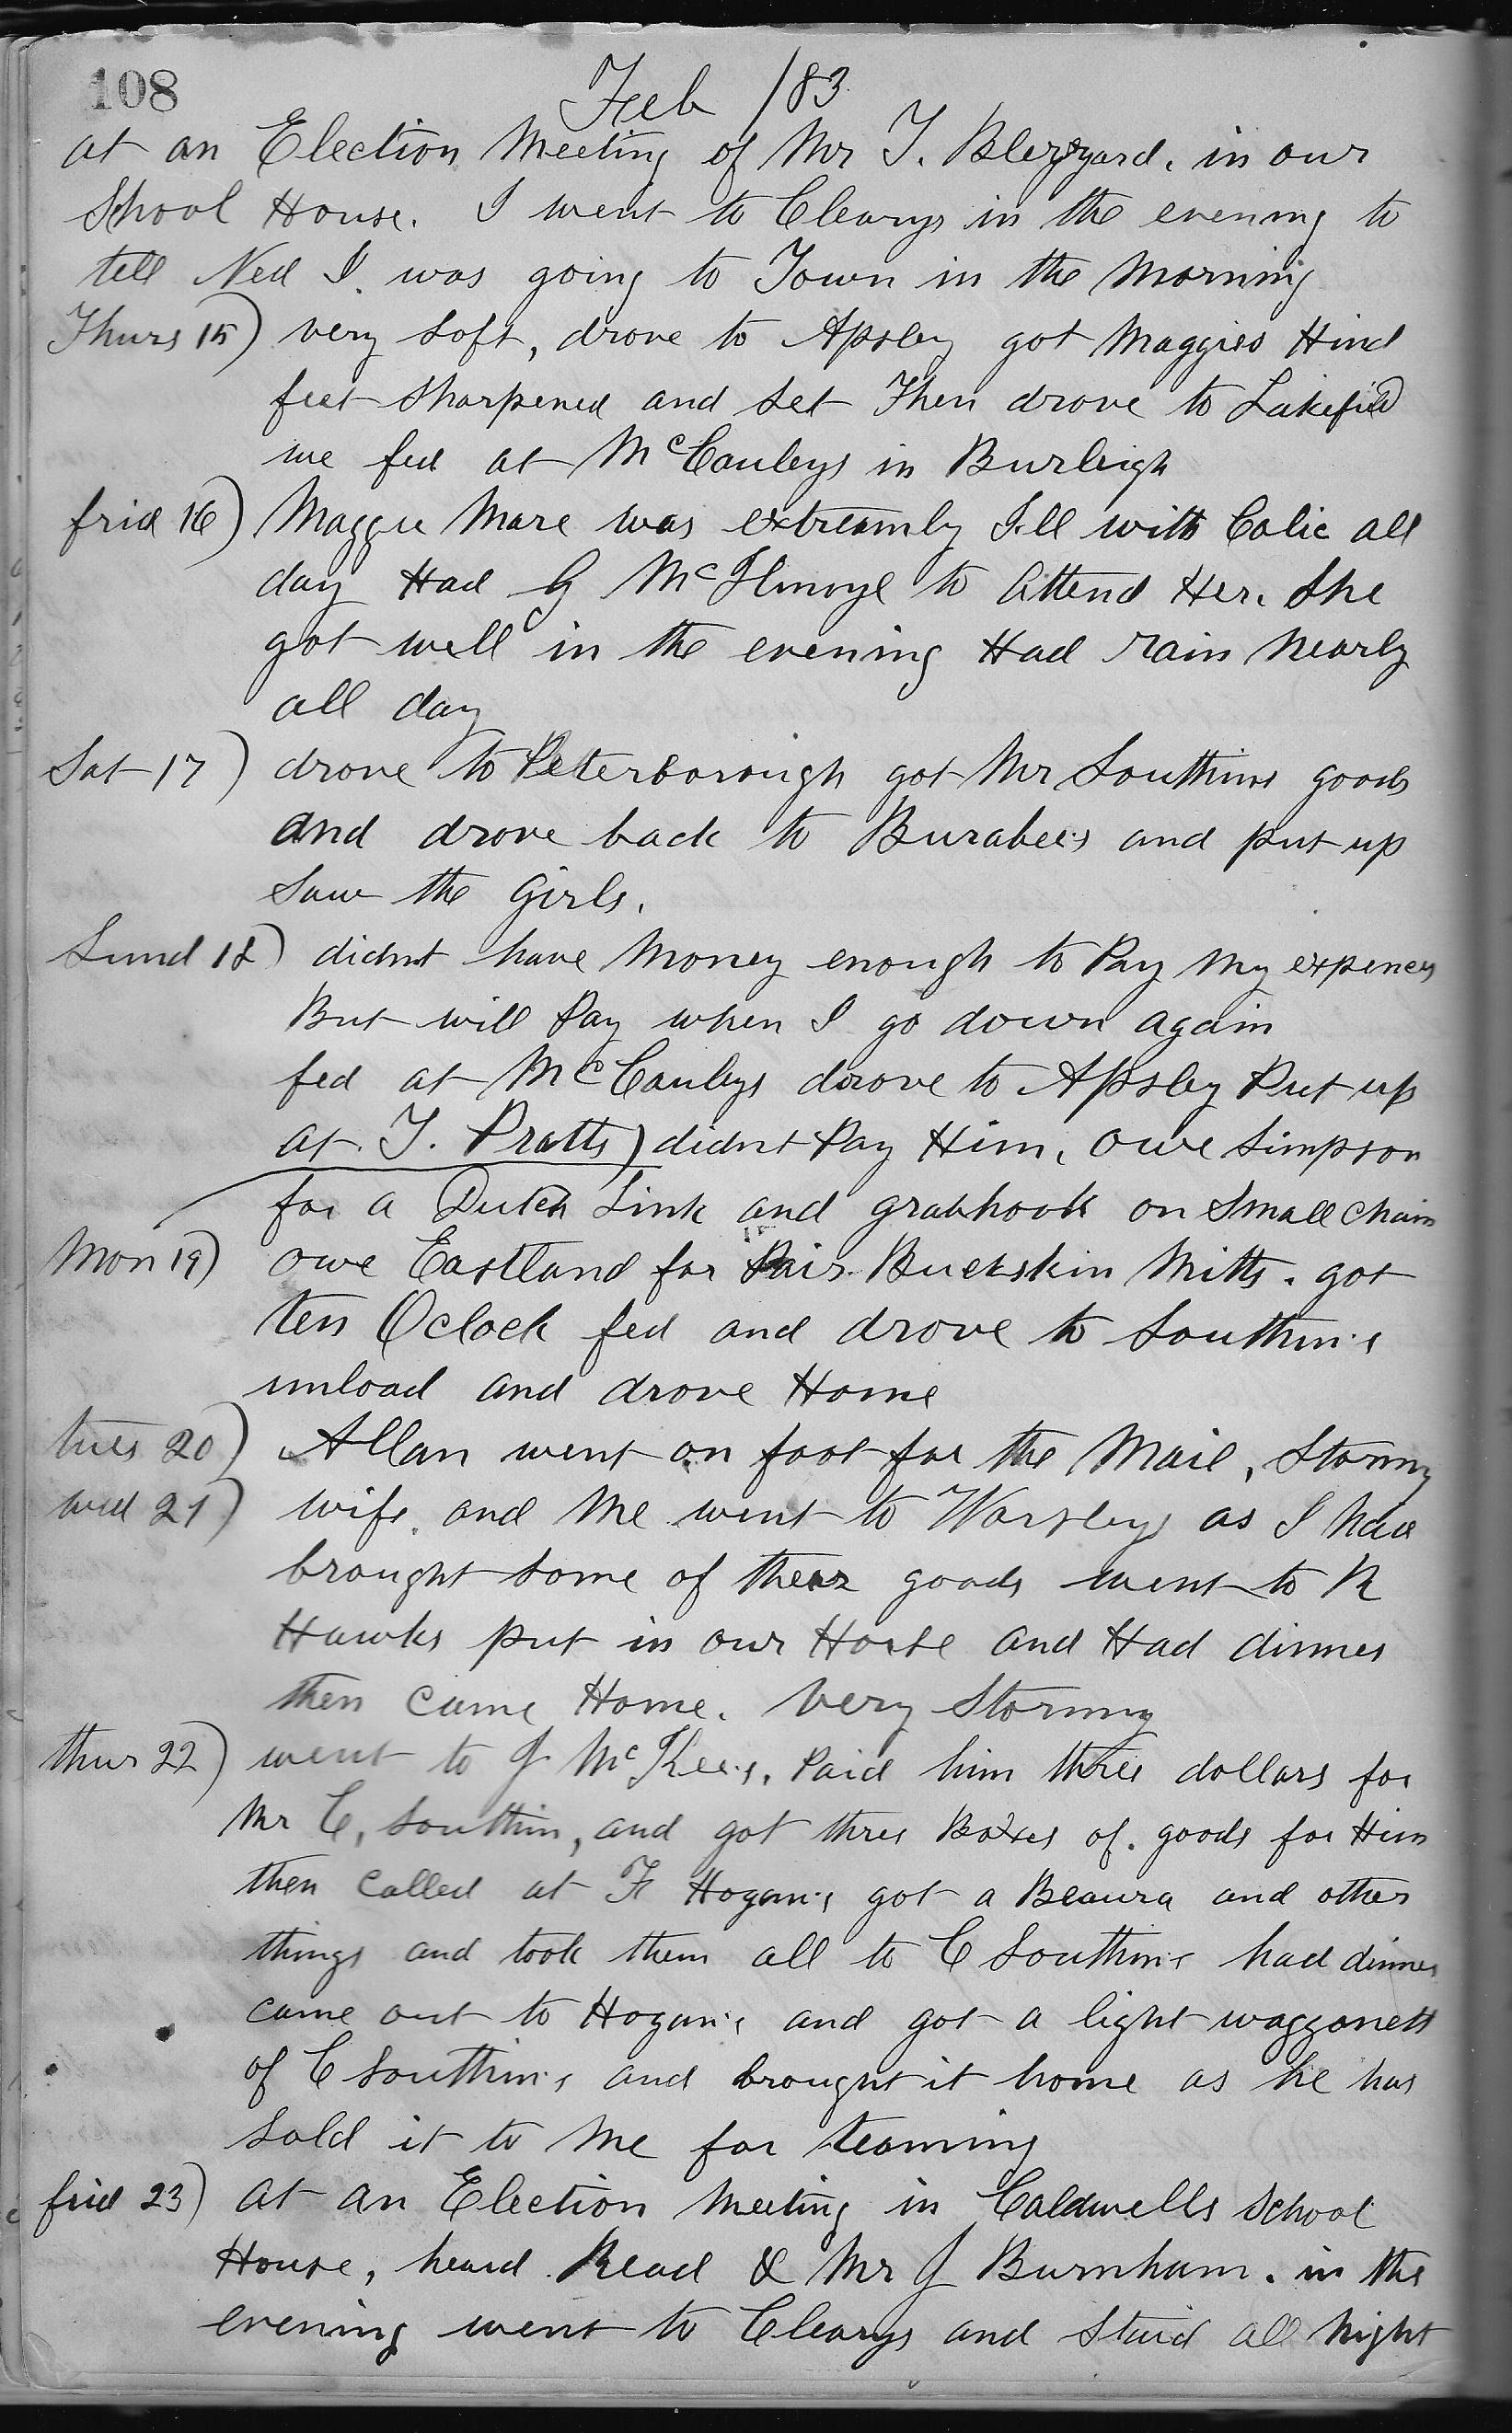 108
Feb /83
at an Election Meeting of Mr T. Blezzard. in our
School House. I went to Clearys in the evening to
tell Ned I was going to Town in the Morning
Thurs 15) very Soft, drove to Apsley got Maggies Hind
feet Sharpened and Set Then drove to Lakefield
we fed at McCauleys in Burleigh
frid 16) Maggie Mare was extreamly Ill with Colic all
day Had G to Attend Her. She
got well in the evening Had rain Nearly
all day
Sat 17) drove to Peterborough got Mr Southins goods
And drove back to and put up
Saw the Girls.
Sund 18) didnt have Money enough to Pay My expences
But will Pay when I go down again
fed at McCauleys drove to Apsley Put up
at T. Pratts) didnt Pay Him, Owe Simpson
for a Dutch Link and grabhook on Small Chain
Mon 19) owe Eastland for Pair Buckskin Mitts. got
ten Oclock fed and drove to Southin's
unload and drove Home
tues 20) Allan went on foot for the Mail, Stormy
wed 21) wife and Me went to as I had
brought Some of their goods went to R
Hawks put in our Horse and Had dinner
then came Home. Very Stormy
thur 22) went to J McKee's. Paid him three dollars for
Mr C, Southin, and got three Boxes of. goods for Him
then called at F Hogan's got a Beaura and other
things and took them all to C Southin's had dinner
came out to Hogan's and got a light waggonett
of C Southin's and brought it home as he has
Sold it to Me for teaming
frid 23) at an Election Meeting in Caldwells School
House, heard Read & Mr J Burnham. in the
evening went to Clearys and Staid all Night